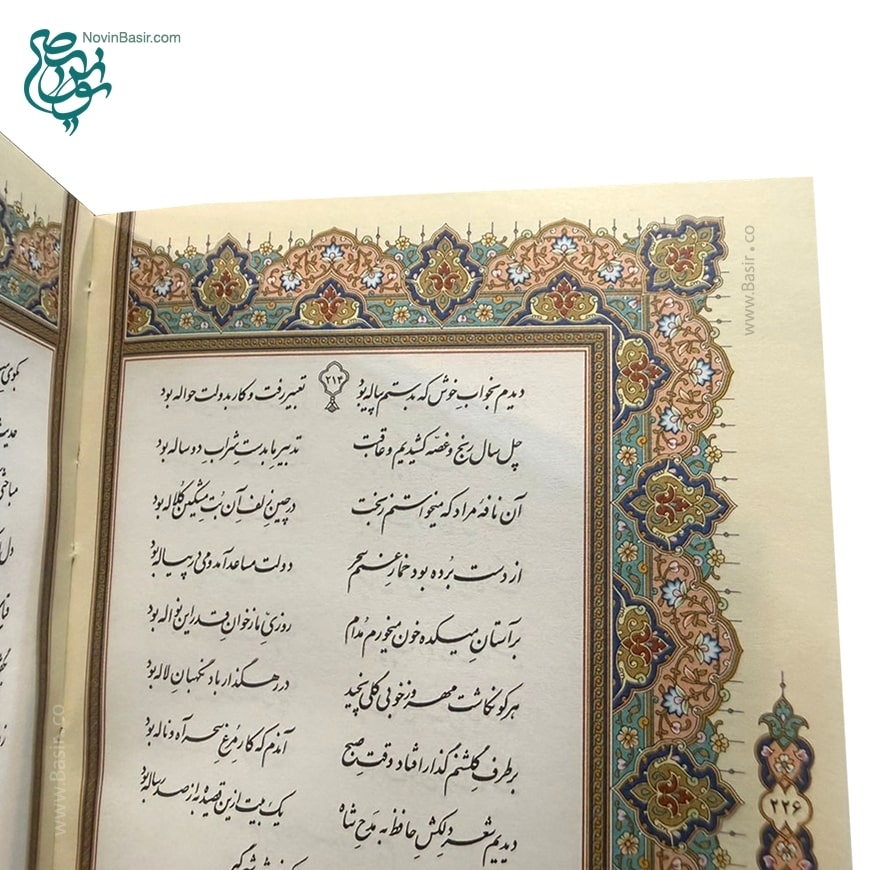 NovinBasir.com
نوین بصیر
www.Basir.co
دیدم بخوابِ خوش که بدستم پیاله بود ۲۱۴ تعبیر رفت و کار بدولت حواله بود
چل سال رنج و غصّه کشیدیم و عاقبت تدبیرِ ما بدستِ شرابِ دو ساله بود
آن نافهٔ مراد که میخواستم ز بخت در چینِ زلفِ آن بُتِ مشکین کُلاله بود
از دست بُرده بود خمارِ غمم سحر دولت مساعد آمد و می در پیاله بود
بر آستانِ میکده خون میخورم مُدام روزیِّ ما ز خوانِ قدر این نواله بود
هر کو نکاشت مهر و ز خوبی گلی نچید در رهگذارِ باد نگهبانِ لاله بود
بر طرفِ گلشنم گذار افتاد وقتِ صبح آندم که کارِ مُرغِ سحر آه و ناله بود
دیدیم شعرِ دلکشِ حافظ به مدحِ شاه یک بیت ازین قصیده به از صد رساله بود
۲۲۶
www.Basir.co